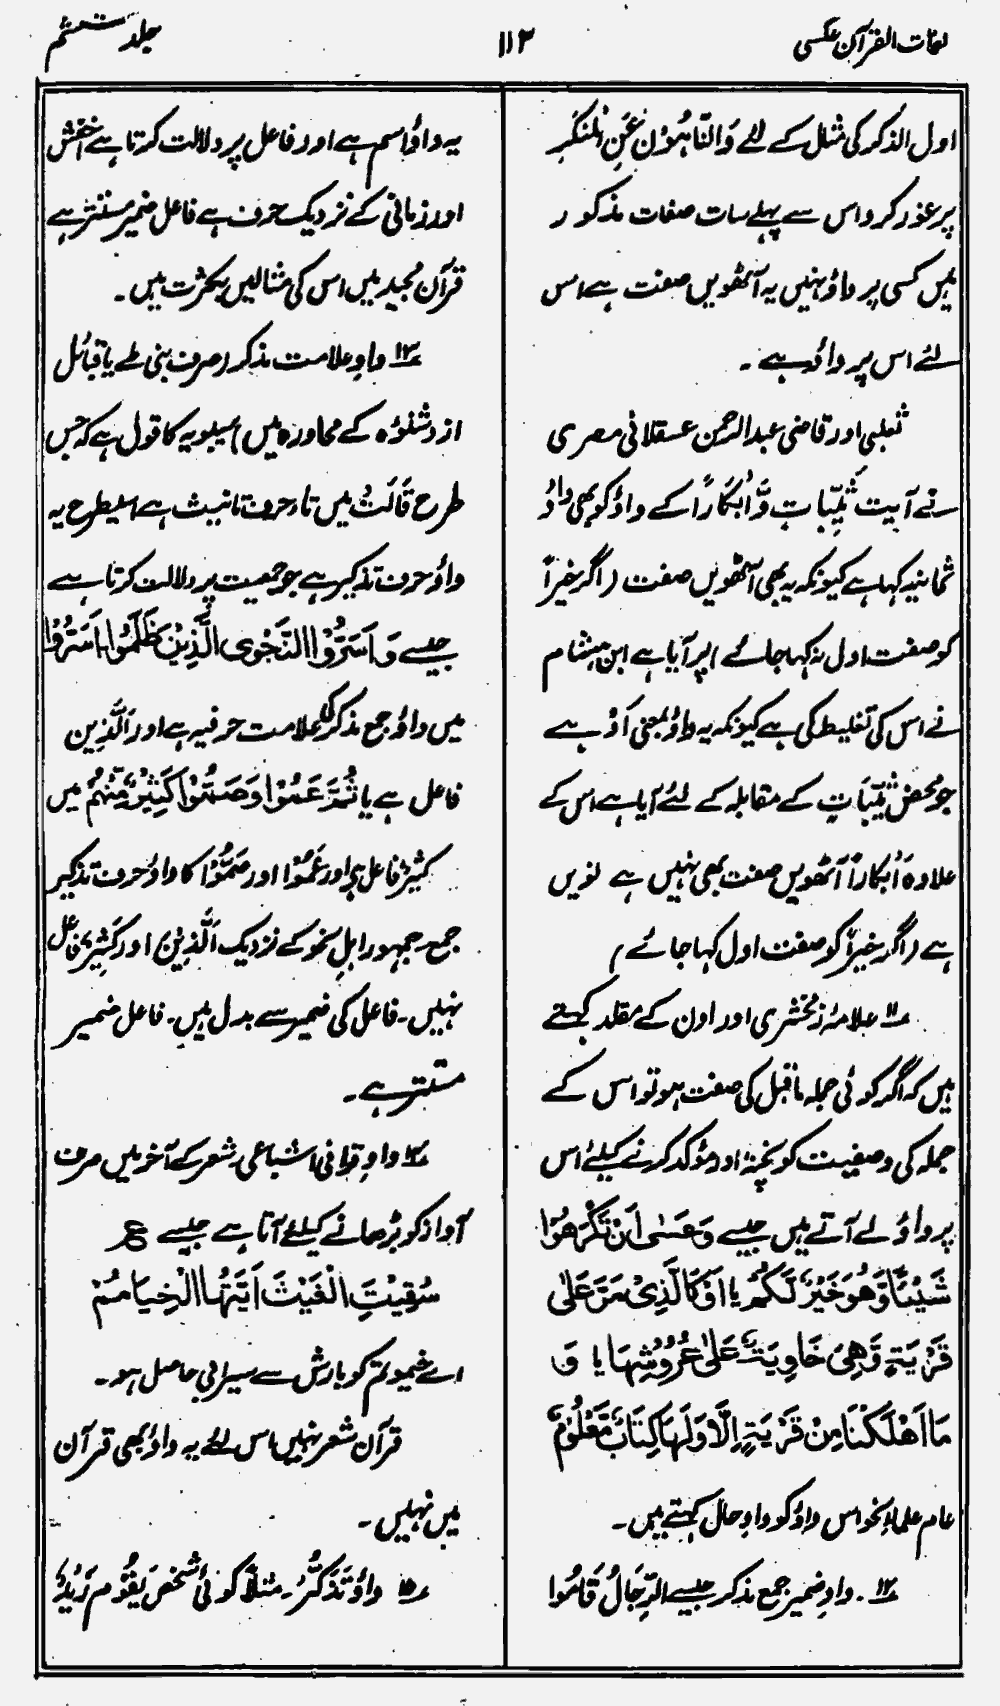 لغات القرآن عکسی
۱۱۲
جلد ششم
اول الذکر کی مثال کے لئے وَالنَّاہُوْنَ عَنِ الْمُنْکَرِ
پر غور کرو اس سے پہلے سات صفات مذکور
ہیں کسی پر واؤ نہیں یہ آٹھویں صفت ہے اس
لئے اس پر واؤ ہے۔
ثعلبی اور قاضی عبدالرحمن عسقلانی مصری
نے آیت ثَیِّبَاتٍ وَّاَبْکَارًا کے واؤ کو بھی واؤ
ثمانیہ کہا ہے کیونکہ یہ بھی آٹھویں صفت (اگر خیراً
کو صفت اول نہ کہا جائے) پر آیا ہے ابن ہشام
نے اس کی تغلیط کی ہے کیونکہ یہ واؤ بمعنی اَوْ ہے
جو محض ثَیِّبَاتٍ کے مقابلہ کے لئے آیا ہے اس کے
علاوہ اَبْکَاراً آٹھویں صفت بھی نہیں ہے نویں
ہے (اگر خیراً کو صفت اول کہا جائے)
۱۱ علامہ زمخشری اور اون کے مقلد کہتے
ہیں کہ اگر کوئی جملہ ماقبل کی صفت ہو تو اس کے
جملہ کی وصفیت کو پختہ اور مؤکد کرنے کیلئے اس
پر واؤ لے آتے ہیں جیسے وَعَسٰی اَنْ تَکْرَھُوْا
شَیْئًا وَّھُوَ خَیْرٌ لَّکُمْ یا اَوْ کَالَّذِیْ مَرَّ عَلٰی
قَرْیَۃٍ وَّھِیَ خَاوِیَۃٌ عَلٰی عُرُوْشِہَا یا وَ
مَا اَھْلَکْنَا مِنْ قَرْیَۃٍ اِلَّا وَلَہَا کِتَابٌ مَّعْلُوْمٌ
عام علماء نحو اس واؤ کو واوِ حال کہتے ہیں۔
۱۲۔ واوِ ضمیر جمع مذکر جیسے الرِّجَالُ قَامُوا
یہ واؤ اسم ہے اور فاعل پر دلالت کرتا ہے اخفش
اور زمانی کے نزدیک حرف ہے فاعل ضمیر مستتر ہے
قرآن مجید میں اس کی مثالیں بکثرت ہیں۔
۱۳ واوِ علامت مذکر (صرف بنی طے یا قبائل
ازد شنوٴہ کے محاورہ میں) سیبویہ کا قول ہے کہ جس
طرح قَالَتْ میں تاء حرف تانیث ہے اسیطرح یہ
واؤ حرف تذکیر ہے جو جمعیت پر دلالت کرتا ہے
جیسے وَ اَسَرُّوا النَّجْوٰی الَّذِیْنَ ظَلَمُوْا اَسَرُّوْا
میں واؤ جمع مذکر کی علامت حرفیہ ہے اور اَلَّذِین
فاعل ہے یا ثُمَّ عَمُوْا وَصَمُّوْا کَثِیْرٌ مِّنْہُمْ میں
کثیرٌ فاعل ہے اور عَمُوْا اور صَمُّوْا کا واؤ حرف تذکیر
جمع۔ جمہور اہلِ نحو کے نزدیک اَلَّذِیْنَ اور کَثِیْرٌ فاعل
نہیں۔ فاعل کی ضمیر سے بدل ہیں۔ فاعل ضمیر
مستتر ہے۔
۱۴ واوِ قوافی اشباعی شعر کے آخر میں صرف
آواز کو بڑھانے کیلئے آتا ہے جیسے ع
سُقِیْتِ الْغَیْثَ اَیَّتُہَا الْخِیَامُمْ
اے خیمو تم کو بارش سے سیرابی حاصل ہو۔
قرآن شعر نہیں اس لئے یہ واؤ بھی قرآن
میں نہیں۔
۱۵ واؤ تَذَکُّرْ۔ مثلاً کوئی شخص یَقُوْمُ زَیْدٌ